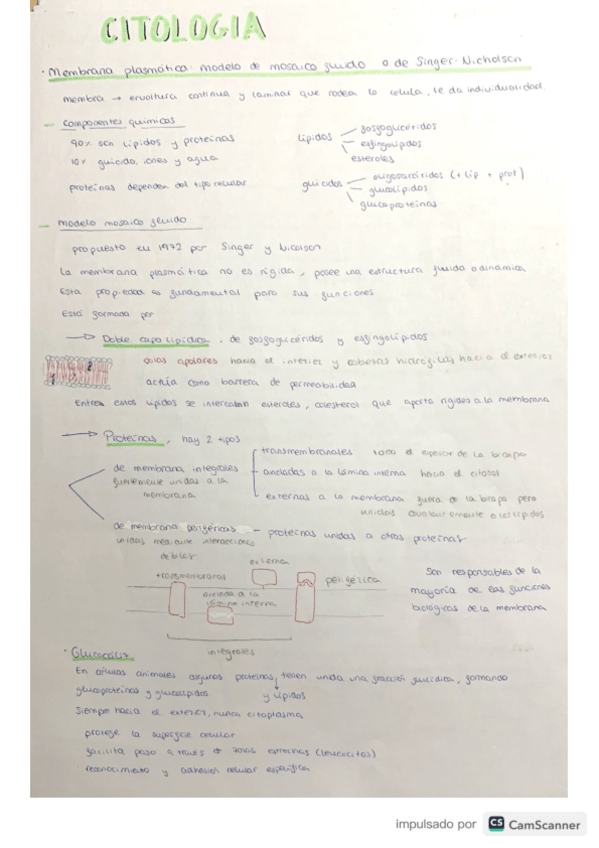 CITOLOGIA
· Membrana plasmática: modelo de mosaico fluido o de Singer-Nicholson
membra → envoltura continua y laminar que rodea la célula, le da individualidad.
— Componentes químicos
90% son lípidos y proteínas
10% glúcido, iones y agua
proteínas dependen del tipo celular
lípidos — fosfoglicéridos
esfingolípidos
esteroles
glúcidos — oligosacáridos (+ lip + prot)
glucolípidos
glucoproteinas
— modelo mosaico fluido
propuesto en 1972 por Singer y Nicolson
La membrana plasmática no es rígida, posee una estructura fluida o dinámica
Esta propiedad es fundamental para sus funciones
Está formada por
→ Doble capa lipídica. de fosfoglicéridos y esfingolípidos
colas apolares hacia el interior y cabezas hidrófilas hacia el exterior
actúa como barrera de permeabilidad
Entre estos lípidos se intercalan esteroles, colesterol que aporta rigidez a la membrana
→ Proteínas, hay 2 tipos
de membrana integrales
fuertemente unidas a la
membrana
transmembranales todo el espesor de la bicapa
ancladas a la lámina interna hacia el citosol
externas a la membrana fuera de la bicapa pero
unidas covalentemente a los lípidos
de membrana periféricas — proteínas unidas a otras proteínas
unidas mediante interacciones
débiles
transmembrana
externa
anclada a la
lámina interna
periférica
integrales
Son responsables de la
mayoría de las funciones
biológicas de la membrana
· Glucocálix
En células animales algunas proteínas, tienen unida una fracción glucídica, formando
y lípidos
glucoproteinas y glucolípidos
Siempre hacia el exterior, nunca citoplasma
protege la superficie celular
facilita paso a través de zonas estrechas (leucocitos)
reconocimiento y adhesión celular específica
impulsado por CS CamScanner